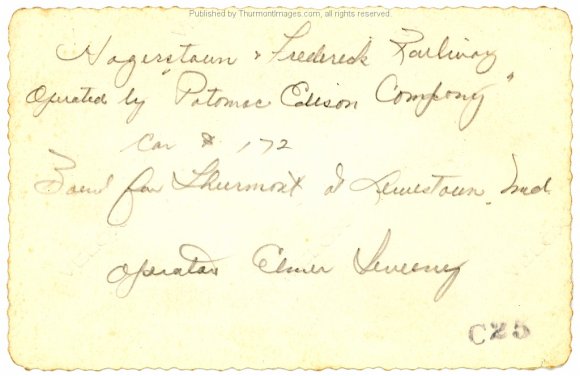 Published by ThurmontImages.com, all rights reserved.
Hagerstown & Frederick Railway
Operated by "Potomac Edison Company"
Car # 172
Bound for Thurmont at Lewistown, Md.
Operator Elmer Sweeney
C25